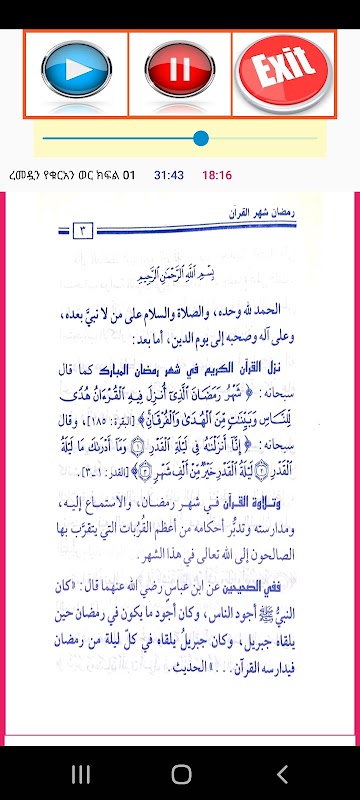 Exit
ረመዷን የቁርአን ወር ክፍል 01 31:43 18:16
رمضان شهر القرآن
٣
بِسْمِ اللَّهِ الرَّحْمَٰنِ الرَّحِيمِ
الحمد لله وحده، والصلاة والسلام على من لا نبيَّ بعده،
وعلى آله وصحبه إلى يوم الدين، أما بعد:
نزل القرآن الكريم في شهر رمضان المبارك كما قال
سبحانه: ﴿ شَهْرُ رَمَضَانَ ٱلَّذِىٓ أُنزِلَ فِيهِ ٱلْقُرْءَانُ هُدًى
لِّلنَّاسِ وَبَيِّنَٰتٍ مِّنَ ٱلْهُدَىٰ وَٱلْفُرْقَانِ﴾ [البقرة: ١٨٥]، وقال
سبحانه: ﴿ إِنَّآ أَنزَلْنَٰهُ فِى لَيْلَةِ ٱلْقَدْرِ ۝١ وَمَآ أَدْرَىٰكَ مَا لَيْلَةُ
ٱلْقَدْرِ ۝٢ لَيْلَةُ ٱلْقَدْرِ خَيْرٌ مِّنْ أَلْفِ شَهْرٍ ۝٣﴾ [القدر: ١ـ٣].
وتلاوة القرآن في شهر رمضان، والاستماع إليه،
ومدارسته وتدبُّر أحكامه من أعظم القُرُبات التي يتقرَّب بها
الصالحون إلى الله تعالى في هذا الشهر.
ففي الصحيحين عن ابن عباسٍ رضي الله عنهما قال: «كان
النبيُّ ﷺ أجود الناس، وكان أجود ما يكون في رمضان حين
يلقاه جبريل، وكان جبريلُ يلقاه في كلّ ليلة من رمضان
فيدارسه القرآن . . . » الحديث.